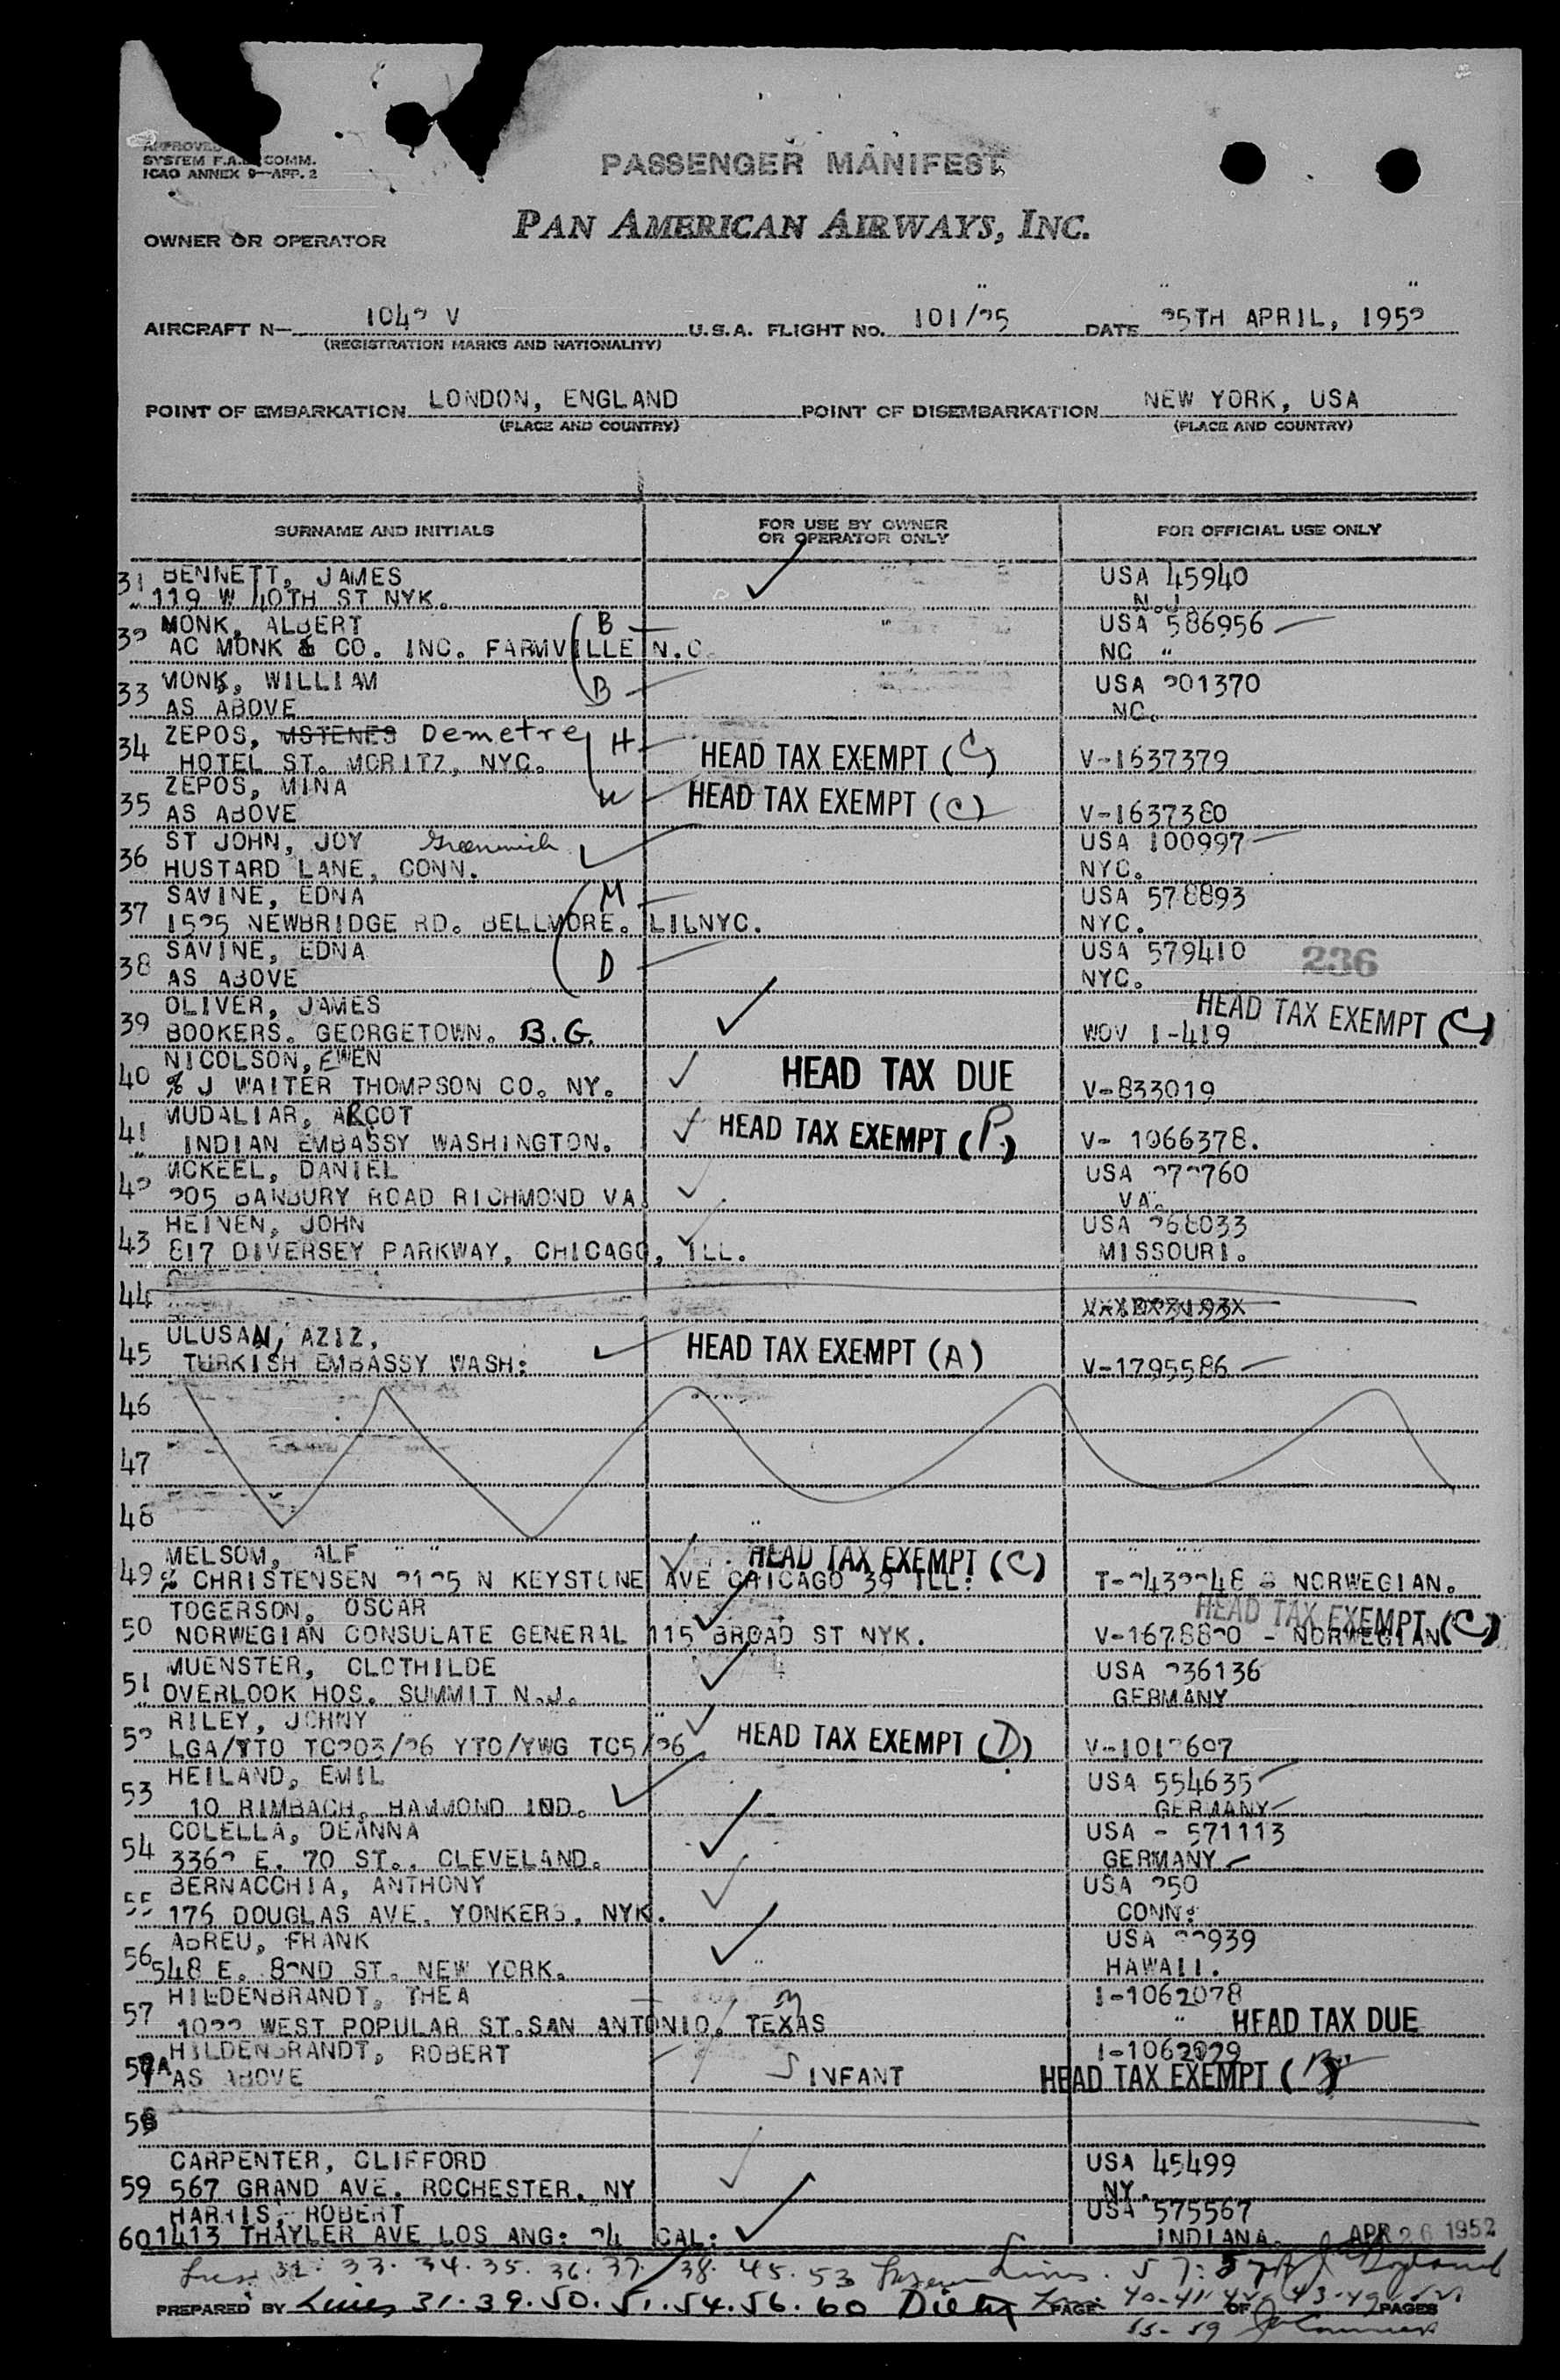 APPROVED
SYSTEM F.A.L. COMM.
ICAO ANNEX 9—APP. 2
PASSENGER MANIFEST
PAN AMERICAN AIRWAYS, INC.
OWNER OR OPERATOR
AIRCRAFT N— 1042 V U.S.A. FLIGHT NO. 101/25 DATE 25TH APRIL, 1952
(REGISTRATION MARKS AND NATIONALITY)
POINT OF EMBARKATION LONDON, ENGLAND POINT OF DISEMBARKATION NEW YORK, USA
(PLACE AND COUNTRY) (PLACE AND COUNTRY)
SURNAME AND INITIALS FOR USE BY OWNER OR OPERATOR ONLY FOR OFFICIAL USE ONLY
31 BENNETT, JAMES USA 45940
119 W 40TH ST NYK. N.J.
32 MONK, ALBERT B USA 586956
AC MONK & CO. INC. FARMVILLE N.C. NC "
33 MONK, WILLIAM B USA 201370
AS ABOVE NC.
34 ZEPOS, MSTENES Demetre H HEAD TAX EXEMPT (C)
HOTEL ST. MORITZ, NYC. V-1637379
35 ZEPOS, MINA W HEAD TAX EXEMPT (C)
AS ABOVE V-1637380
36 ST JOHN, JOY Greenwich USA 100997
HUSTARD LANE, CONN. NYC.
37 SAVINE, EDNA M USA 578893
1525 NEWBRIDGE RD. BELLMORE. LILNYC. NYC.
38 SAVINE, EDNA D USA 579410
AS ABOVE NYC. 236
39 OLIVER, JAMES HEAD TAX EXEMPT (C)
BOOKERS. GEORGETOWN. B.G. WOV 1-419
40 NICOLSON, EWEN HEAD TAX DUE
% J WAITER THOMPSON CO. NY. V-833019
41 MUDALIAR, ARCOT HEAD TAX EXEMPT (P.)
INDIAN EMBASSY WASHINGTON. V- 1066378.
42 MCKEEL, DANIEL USA 272760
205 BANBURY ROAD RICHMOND VA. VA.
43 HEINEN, JOHN USA 268033
817 DIVERSEY PARKWAY, CHICAGO, ILL. MISSOURI.
44
45 ULUSAN, AZIZ, HEAD TAX EXEMPT (A)
TURKISH EMBASSY WASH: V-1795586
46
47
48
49 MELSOM, ALF HEAD TAX EXEMPT (C)
% CHRISTENSEN 2125 N KEYSTONE AVE CHICAGO 39 ILL: T-2432248 NORWEGIAN.
50 TOGERSON, OSCAR HEAD TAX EXEMPT (C)
NORWEGIAN CONSULATE GENERAL 115 BROAD ST NYK. V-1678820 - NORWEGIAN
51 MUENSTER, CLOTHILDE USA 236136
OVERLOOK HOS. SUMMIT N.J. GERMANY
52 RILEY, JOHNY HEAD TAX EXEMPT (D)
LGA/YTO TC203/26 YTO/YWG TC5/26 V-1012697
53 HEILAND, EMIL USA 554635
10 RIMBACH, HAMMOND IND. GERMANY
54 COLELLA, DEANNA USA - 571113
3362 E. 70 ST., CLEVELAND. GERMANY
55 BERNACCHIA, ANTHONY USA 250
175 DOUGLAS AVE. YONKERS, NYK. CONN:
56 ABREU, FRANK USA 22939
548 E. 82ND ST. NEW YORK. HAWAII.
57 HILDENBRANDT, THEA I-1062078
1022 WEST POPULAR ST.SAN ANTONIO, TEXAS HEAD TAX DUE
57A HILDENBRANDT, ROBERT I-1062079
AS ABOVE INFANT HEAD TAX EXEMPT (B)
58
CARPENTER, CLIFFORD USA 45499
59 567 GRAND AVE. ROCHESTER, NY NY.
HARRIS, ROBERT USA 575567
60 1413 THAYLER AVE LOS ANG: 24 CAL: INDIANA. APR 26 1952
32. 33. 34. 35. 36. 37. 38. 45. 53 Lines. 57. 57A
PREPARED BY Lines 31. 39. 50. 51. 54. 56. 60 PAGE 40-41-42 OF 43-49 PAGES
55-59